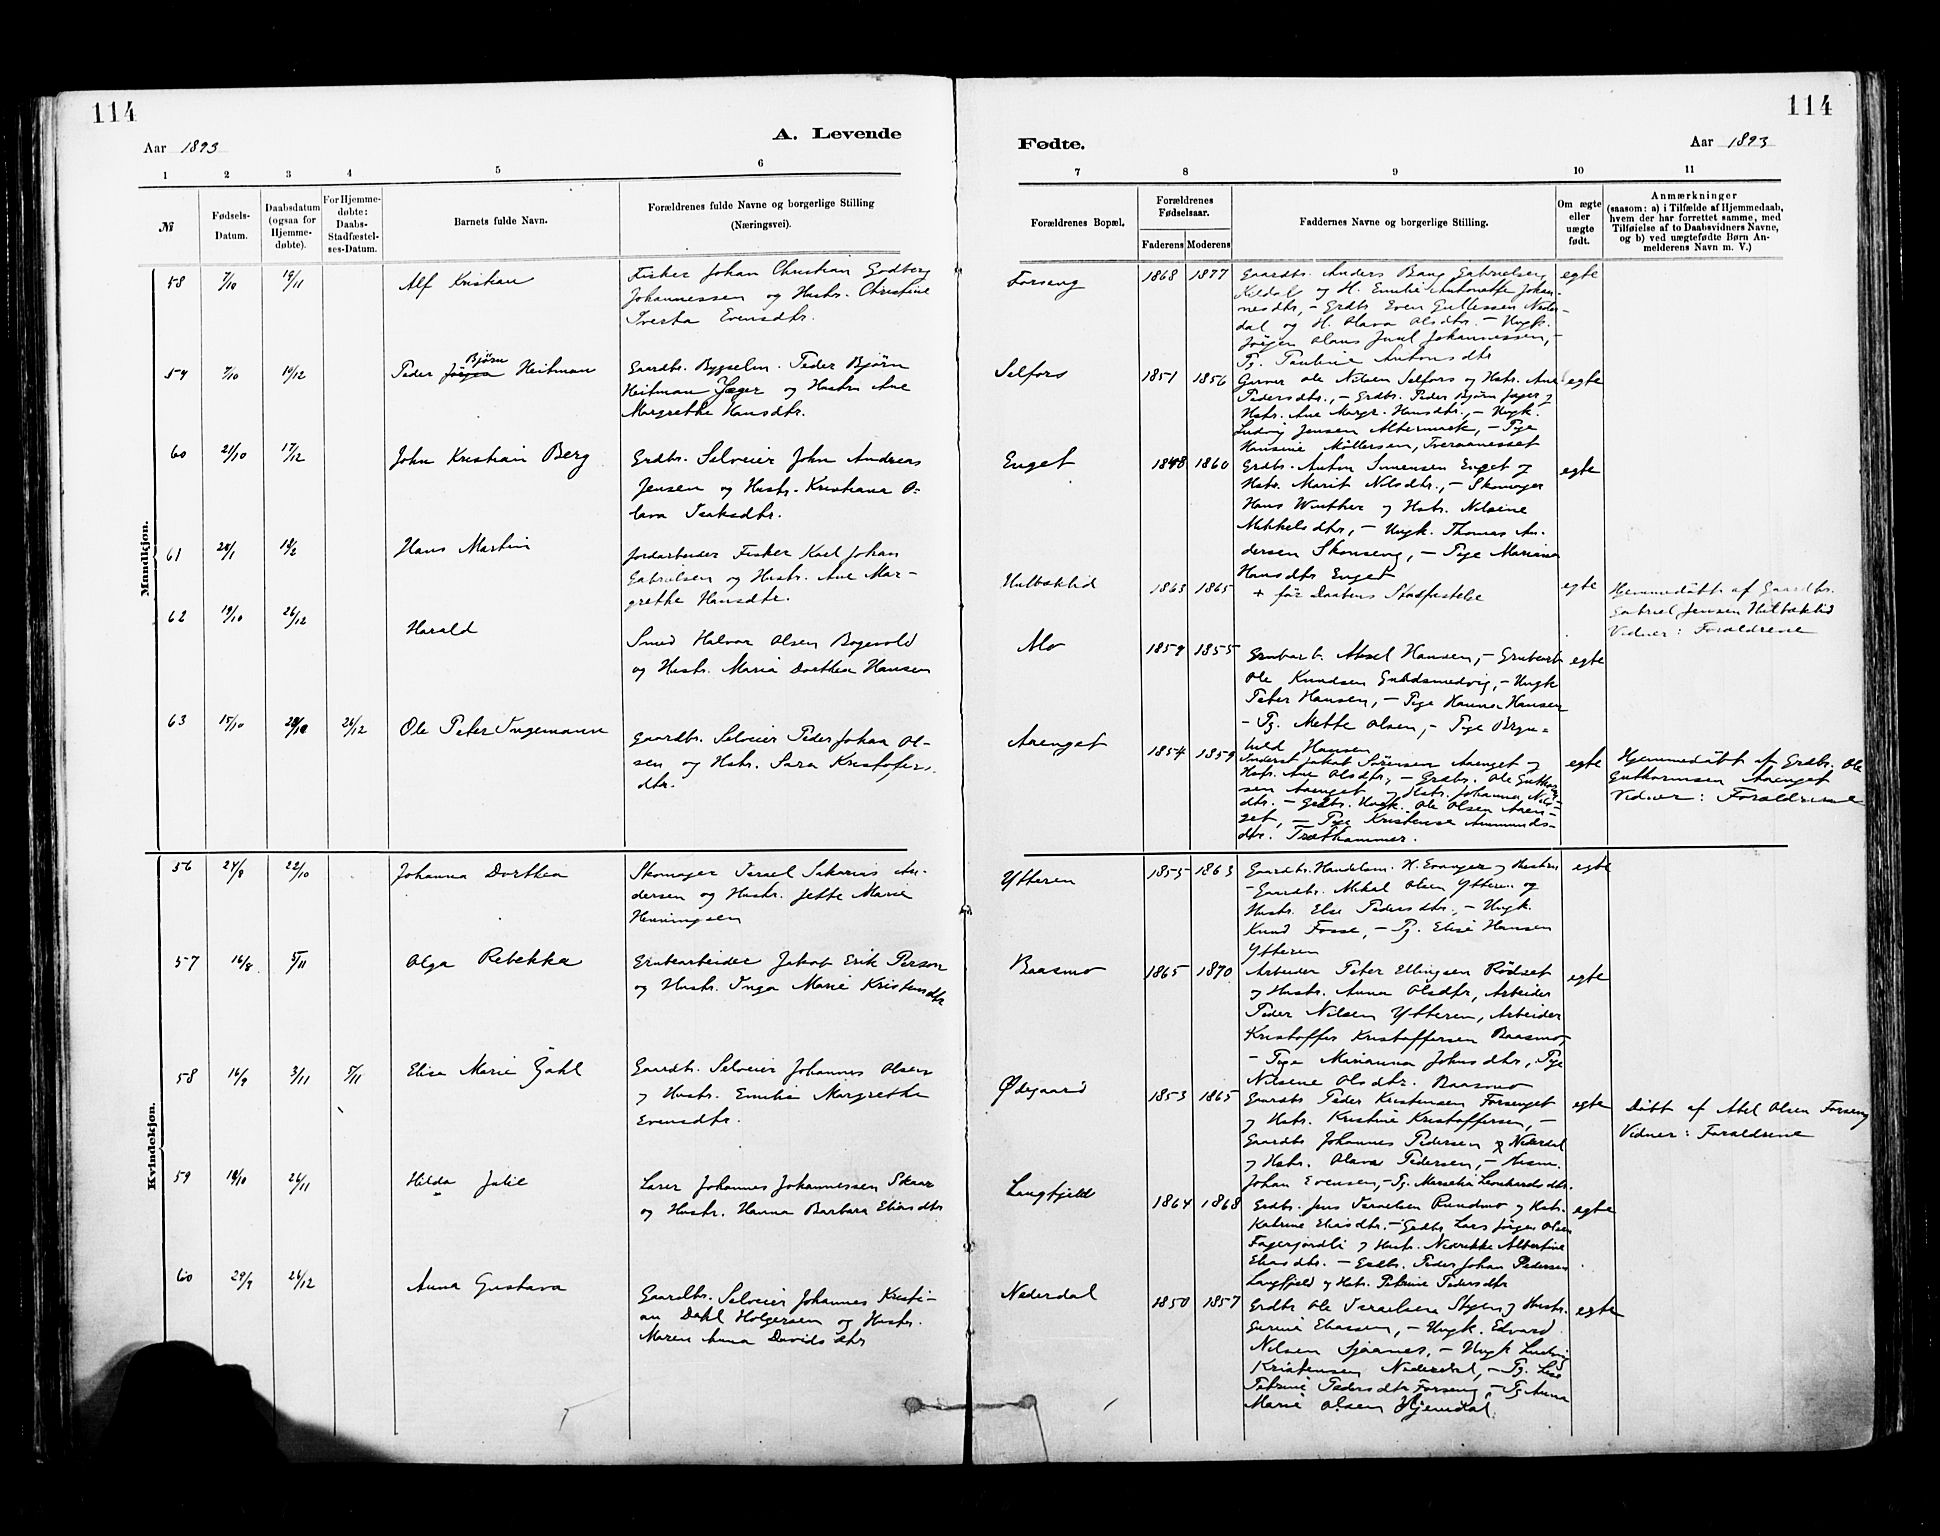 114
114
A. Levende
Fødte.
Aar 1893
Aar 1893
1 2 3 4 5 6
7 8 9 10 11
№
Fødsels-
Datum.
Daabsdatum
(ogsaa for
Hjemme-
døbte).
For Hjemme-
døbte:
Daabs-
Stadfæstel-
ses-Datum.
Barnets fulde Navn.
Forældrenes fulde Navne og borgerlige Stilling
(Næringsvei).
Forældrenes Bopæl.
Forældrenes
Fødselsaar.
Faderens Moderens
Faddernes Navne og borgerlige Stilling.
Om ægte
eller
uægte
født.
Anmærkninger
(saasom: a) i Tilfælde af Hjemmedaab,
hvem der har forrettet samme, med
Tilføielse af to Daabsvidners Navne,
og b) ved uægtefødte Børn An-
melderens Navn m. V.)
Mandkjøn.
58 7/10 19/11 Alf Kristian
Fisker Johan Christian Godberg
Johannessen og Hustr. Christine
Iversta Evensdtr.
Forseng 1868 1877
Gaardbr. Anders Bang Gabrielsen
Kildal og H. Emilie Antonette Johan-
nesdtr, - Grdbr Even Gullessen Neder-
dal og H. Olava Olsdtr. - Ungk.
Jörgen Olaus Juul Johannessen, -
Pg. Pauline Antonsdtr
egte
59 7/10 10/12 Peder Jörgen Bjørn Heitman
Gaardbr. Bygselm. Peder Bjørn
Heitman Jæger og Hustru Ane
Margrethe Hansdtr.
Selfors 1851 1856
Garver Ole Nilsen Selfors og Hstr. Ane
Pedersdtr, - Grdbr. Peder Bjørn Jæger og
Hstr. Ane Margr. Hansdtr, - Ungk.
Ludvig Jensen Altermark, - Pige
Hansine Möllersen, Tveraanesset
egte
60 21/10 17/12 John Kristian Berg
Grdbr. Selveier John Andreas
Jensen og Hustr. Kristiana O-
lava Isaksdtr.
Enget 1848 1860
Grdbr. Anton Simensen Enget og
Hstr. Marit Nilsdtr., - Skomager
Hans Winther og Hstr. Nilsine
Mikkelsdtr, - Ungk. Thomas An-
dersen Skonseng, - Pige Mariane
Hansdtr Enget
egte
61 Hans Martin
Jordarbeider Fisker Karl Johan
Gabrielsen og Hustr. Ane Mar-
grethe Hansdtr.
Hilbæklid 1863 1865
+ før Daabens Stadfæstelse
egte
Hjemmedöbt af Gaardbr.
Gabriel Jensen Hilbæklid
Vidner: Forældrene
62 19/10 26/12 Harald
Smed Halvor Olsen Bogevold
og Hustr. Maria Dorthea Hansen
Mo 1859 1855
Grubearb. Aksel Hansen, - Grubearb
Ole Knudsen Guldsmedvig, - Ungk
Peter Hansen, - Pige Hanna Hansen
- Pg. Mette Olsen, - Pige Bryn-
hild Hansen
egte
63 15/10 26/12 Ole Peter Ingemann
Gaardbr. Selveier Peder Johan Ol-
sen og Hstr. Sara Kristofers-
dtr.
Aaenget 1854 1859
Inderst Jakob Sörensen Aaenget og
Hstr. Ane Olsdtr, - Grdbr. Ole Guthorm-
sen Aaenget og Hstr. Johanna Nils-
dtr. - Grdbr. Ungk. Ole Olsen Aaen-
get, - Pige Kristense Ammunds-
dtr. Træthammer.
egte
Hjemmedöbt af Grdbr. Ole
Guthormsen Aaenget
Vidner: Forældrene
Kvindekjøn.
56 24/8 22/10 Johanna Dorthea
Skomager Israel Sakarias An-
dersen og Hustr. Jette Marie
Henningsen
Ytteren 1855 1863
Gaardbr. Handelsm. H. Evanger og Hustru
- Gaardbr. Mikal Olsen Ytteren og
Hustr. Else Pedersdtr, - Ungk.
Knud Fosse, - Pg. Elise Hansen
Ytteren
egte
57 16/8 5/11 Olga Rebekka
Grubearbeider Jakob Erik Person
og Hustr. Inga Marie Kristensdtr
Baasmo 1865 1870
Arbeider Peter Ellingsen Rödset
og Hustr. Anna Olsdtr, Arbeider
Peder Nilsen Ytteren, Arbeider
Kristoffer Kristoffersen Baasmo,
- Pige Marianna Johnsdtr, Pige
Nilsine Olsdtr. Baasmo
egte
58 16/9 3/11 5/11 Elise Marie Dahl
Gaardbr. Selveier Johannes Olsen
og Hustr. Emilie Margrethe
Evensdtr.
Ødegaard 1853 1865
Gaardbr Peder Kristensen Forsenget
og Hstr. Kristine Kristoffersen, -
Gaardbr Johannes Pedersen Nederdal
og Hstr. Olava Pedersen, -
Johan Evensen, - Pg. Marselie Leonhardsdtr.
egte
Döbt af Abel Olsen Forseng
Vidner: Forældrene
59 19/10 26/11 Hilda Julie
Lærer Johannes Johannessen Skaar
og Hustr. Hanna Barbara Eliasdtr
Langfjeld 1864 1868
Grdbr. Jens Israelsen Rundmo og Hstr.
Katrine Eliasdtr. - Grdbr Lars Jörgen Olsen
Fagerjordli og Hustr. Nedrikke Albertine
Eliasdtr. - Grdbr. Peder Johan Pedersen
Langfjeld og Hstr. Petrine Pedersdtr
egte
60 29/9 26/12 Anna Gustava
Gaardbr. Selveier Johannes Kristi-
an Dahl Holgersen og Hustr.
Maren Anna Davidsdtr
Nederdal 1850 1857
Grdbr Ole Israelsen Stien og Hustr.
Gurine Eliassen, - Ungk. Edvard
Nilsen Sjaanes, - Ungk Ludvig
Kristensen Nederdal, - Pg. Lise
Petrine Pedersdtr Forseng, - Pg Anna
Marie Olsen Hjemdal.
egte